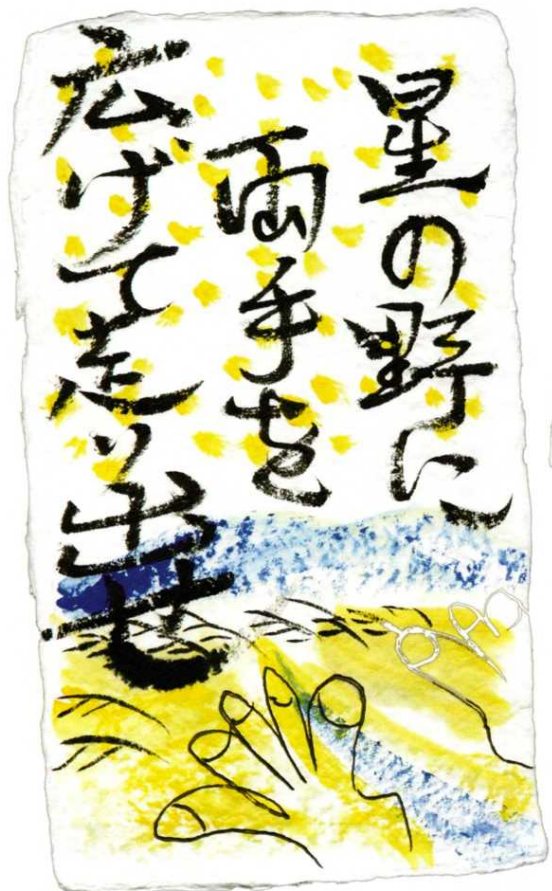 星の野に
両手を
広げて走り出せ